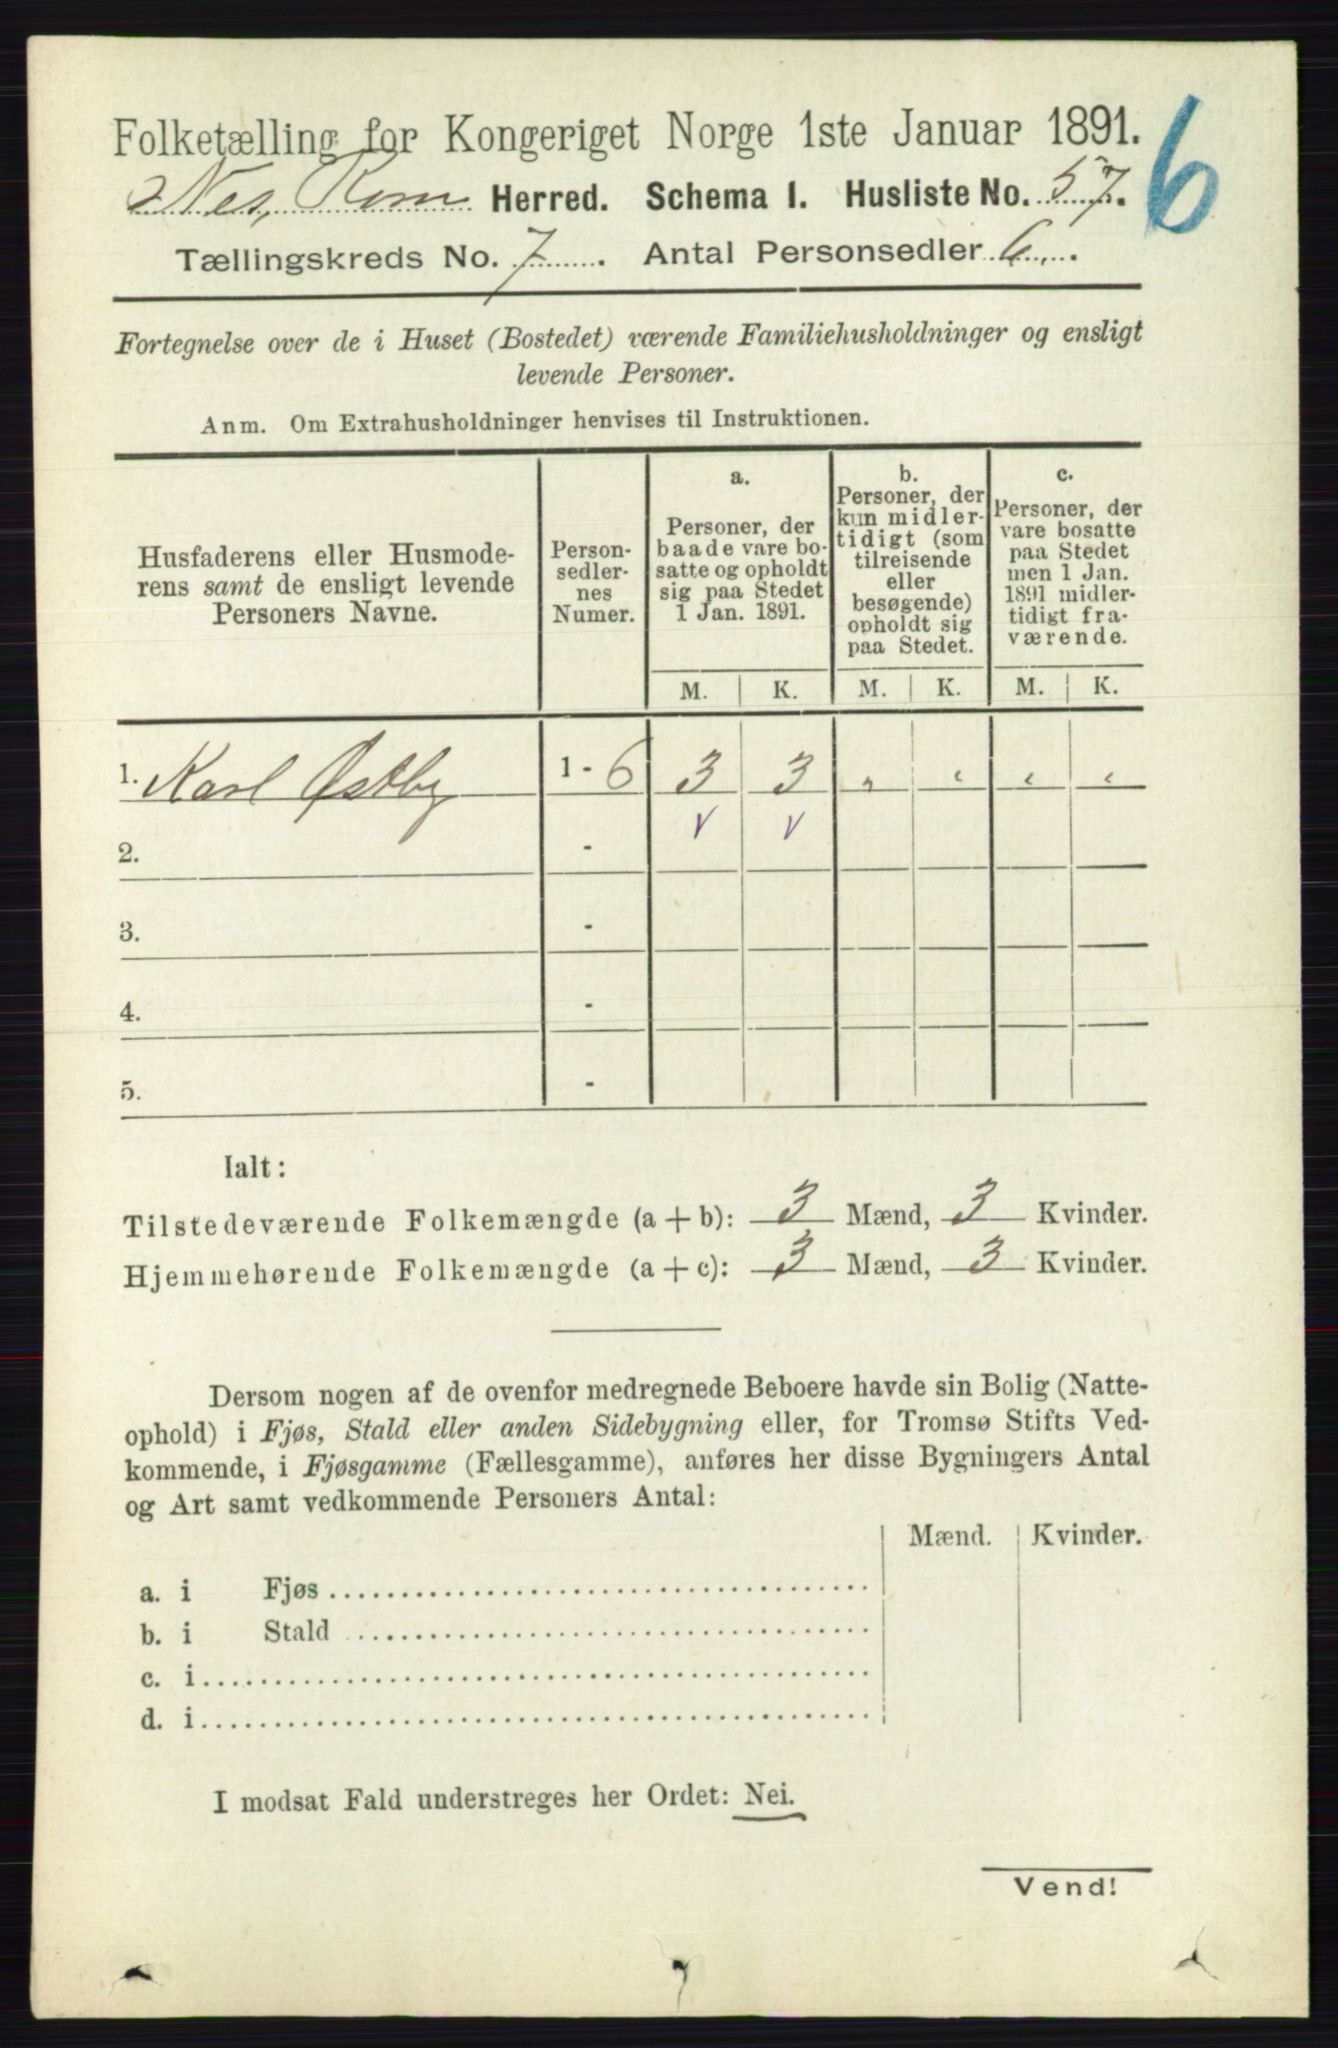 Folketælling for Kongeriget Norge 1ste Januar 1891.
6
Nes, Rom Herred. Schema I. Husliste No. 57.
Tællingskreds No. 7. Antal Personsedler 6.
Fortegnelse over de i Huset (Bostedet) værende Familiehusholdninger og ensligt
levende Personer.
Anm. Om Extrahusholdninger henvises til Instruktionen.
Husfaderens eller Husmode-
rens samt de ensligt levende
Personers Navne.
Person-
sedler-
nes
Numer.
a.
Personer, der
baade vare bo-
satte og opholdt
sig paa Stedet
1 Jan. 1891.
b.
Personer, der
kun midler-
tidigt (som
tilreisende
eller
besøgende)
opholdt sig
paa Stedet.
c.
Personer, der
vare bosatte
paa Stedet
men 1 Jan.
1891 midler-
tidigt fra-
værende.
M. K. M. K. M. K.
1. Karl Østby 1 - 6 3 3 „ “ “ “
v v
2. -
3. -
4. -
5. -
Ialt:
Tilstedeværende Folkemængde (a + b): 3 Mænd, 3 Kvinder.
Hjemmehørende Folkemængde (a + c): 3 Mænd, 3 Kvinder.
Dersom nogen af de ovenfor medregnede Beboere havde sin Bolig (Natte-
ophold) i Fjøs, Stald eller anden Sidebygning eller, for Tromsø Stifts Ved-
kommende, i Fjøsgamme (Fællesgamme), anføres her disse Bygningers Antal
og Art samt vedkommende Personers Antal:
Mænd. Kvinder.
a. i Fjøs
b. i Stald
c. i
d. i
I modsat Fald understreges her Ordet: Nei.
Vend!